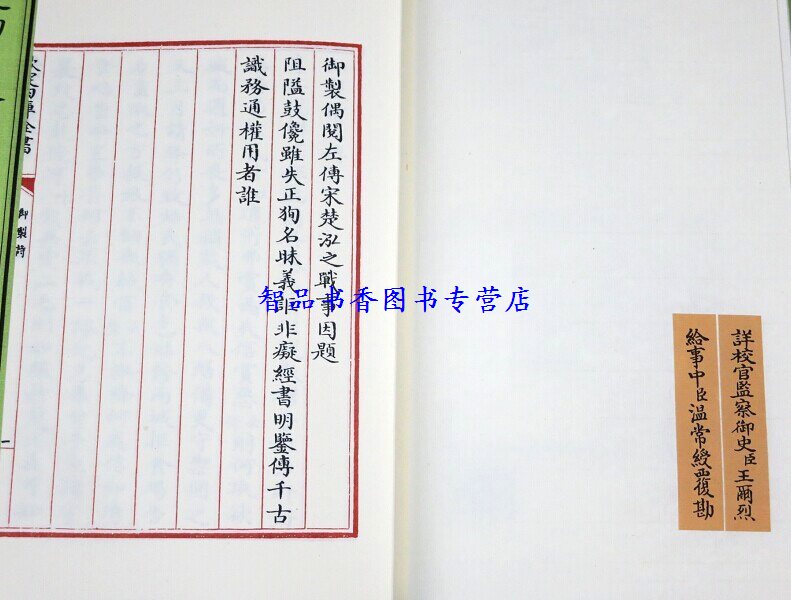 詳校官監察御史臣王爾烈
給事中臣溫常綬覆勘
御製偶閱左傳宋楚泓之戰事因題
阻隘鼓儳雖失正狥名昧義詎非癡經書明鑒傳千古
識務通權用者誰
欽定四庫全書
御製詩
一
智品书香图书专营店